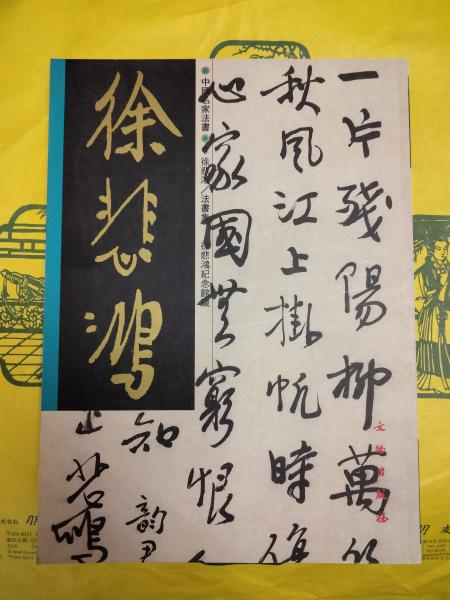 徐悲鴻
中國名家法書
徐悲鴻/法書集
徐悲鴻紀念館藏
一片殘陽柳萬
秋風江上掛帆時
心家國無窮恨
知 韵
悲鴻
文物出版社